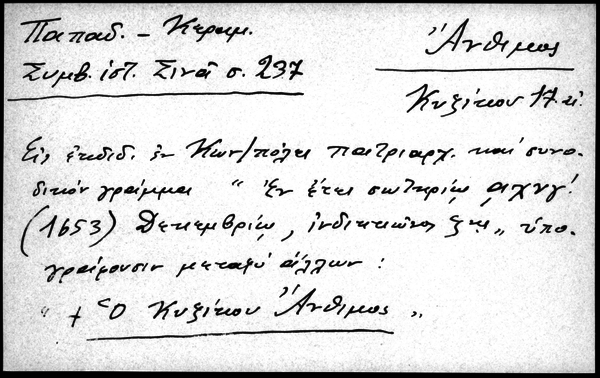 Παπαδ. - Κεραμ.
Συμβ. ἱστ. Σινᾶ σ. 237
Ἄνθιμος
Κυζίκου 17 αἰ.
Εἰς ἐκδιδ. ἐν Κων/πόλει πατριαρχ. καὶ συνο-
δικὸν γράμμα " ἐν ἔτει σωτηρίῳ ͵αχνγʹ.
(1653) Δεκεμβρίῳ, ἰνδικτιῶνος ζης „ ὑπο-
γράφουσιν μεταξὺ ἄλλων :
" + Ὁ Κυζίκου Ἄνθιμος „